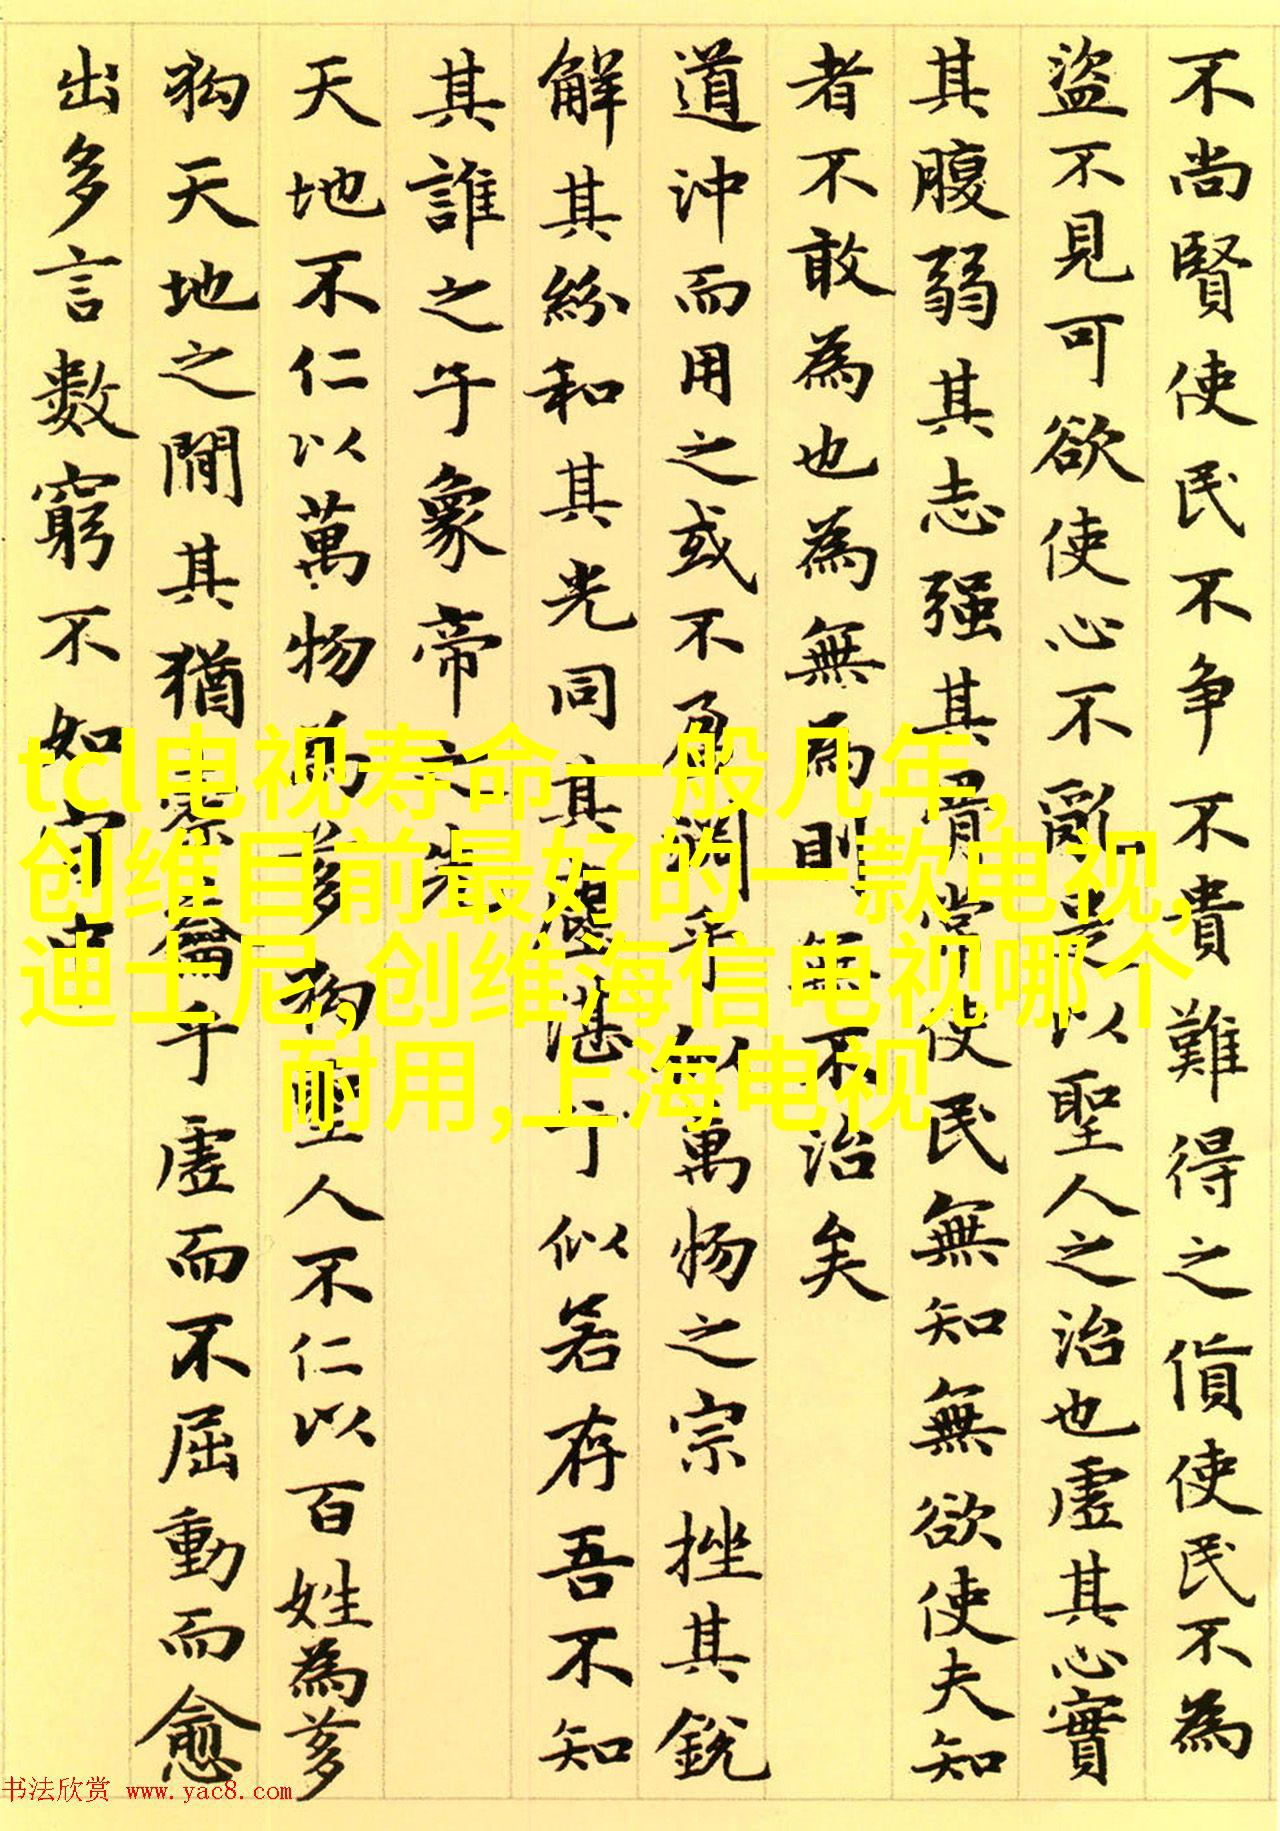 不尚賢使民不争不貴難得之貨使民不為
盜不見可欲使心不亂是以聖人之治也虛其心實
其腹弱其志强其骨常使民無知無欲使夫知
者不敢為也為無為則無不治矣
道沖而用之或不盈淵乎似萬物之宗挫其銳
解其紛和其光同其塵湛兮似若存吾不知
其誰之子象帝之先
天地不仁以萬物為芻狗聖人不仁以百姓為芻
狗天地之間其猶橐籥乎虛而不屈動而愈
出多言數窮不如守中
tcl电视寿命一般几年,
创维目前最好的一款电视,
迪士尼,创维海信电视哪个
耐用,上海电视
书法欣赏 www.yac8.com